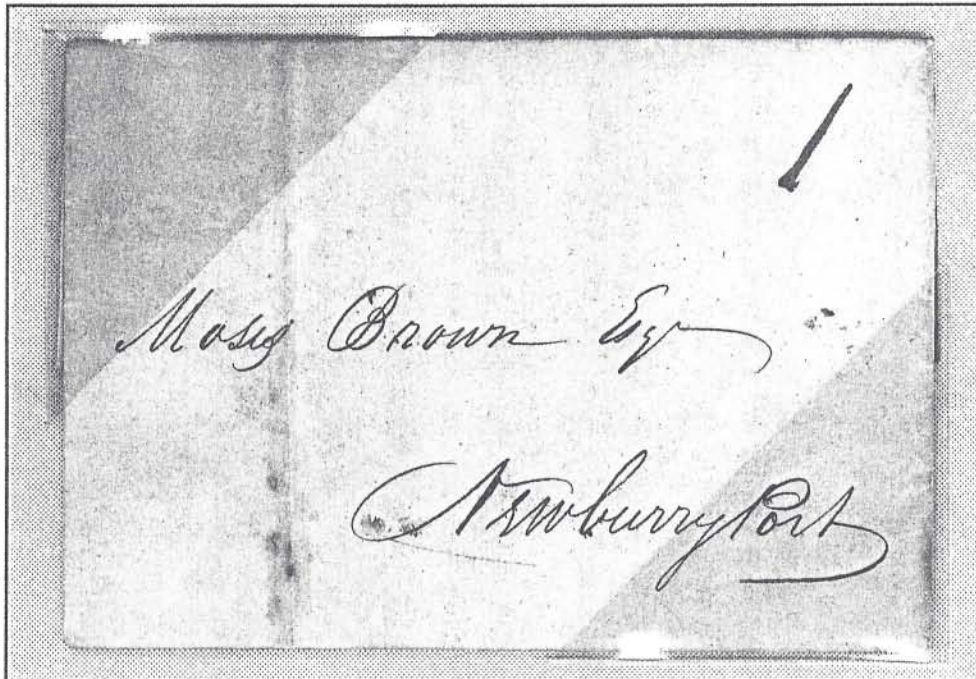 1
Moses Brown Esqr
NewburryPort